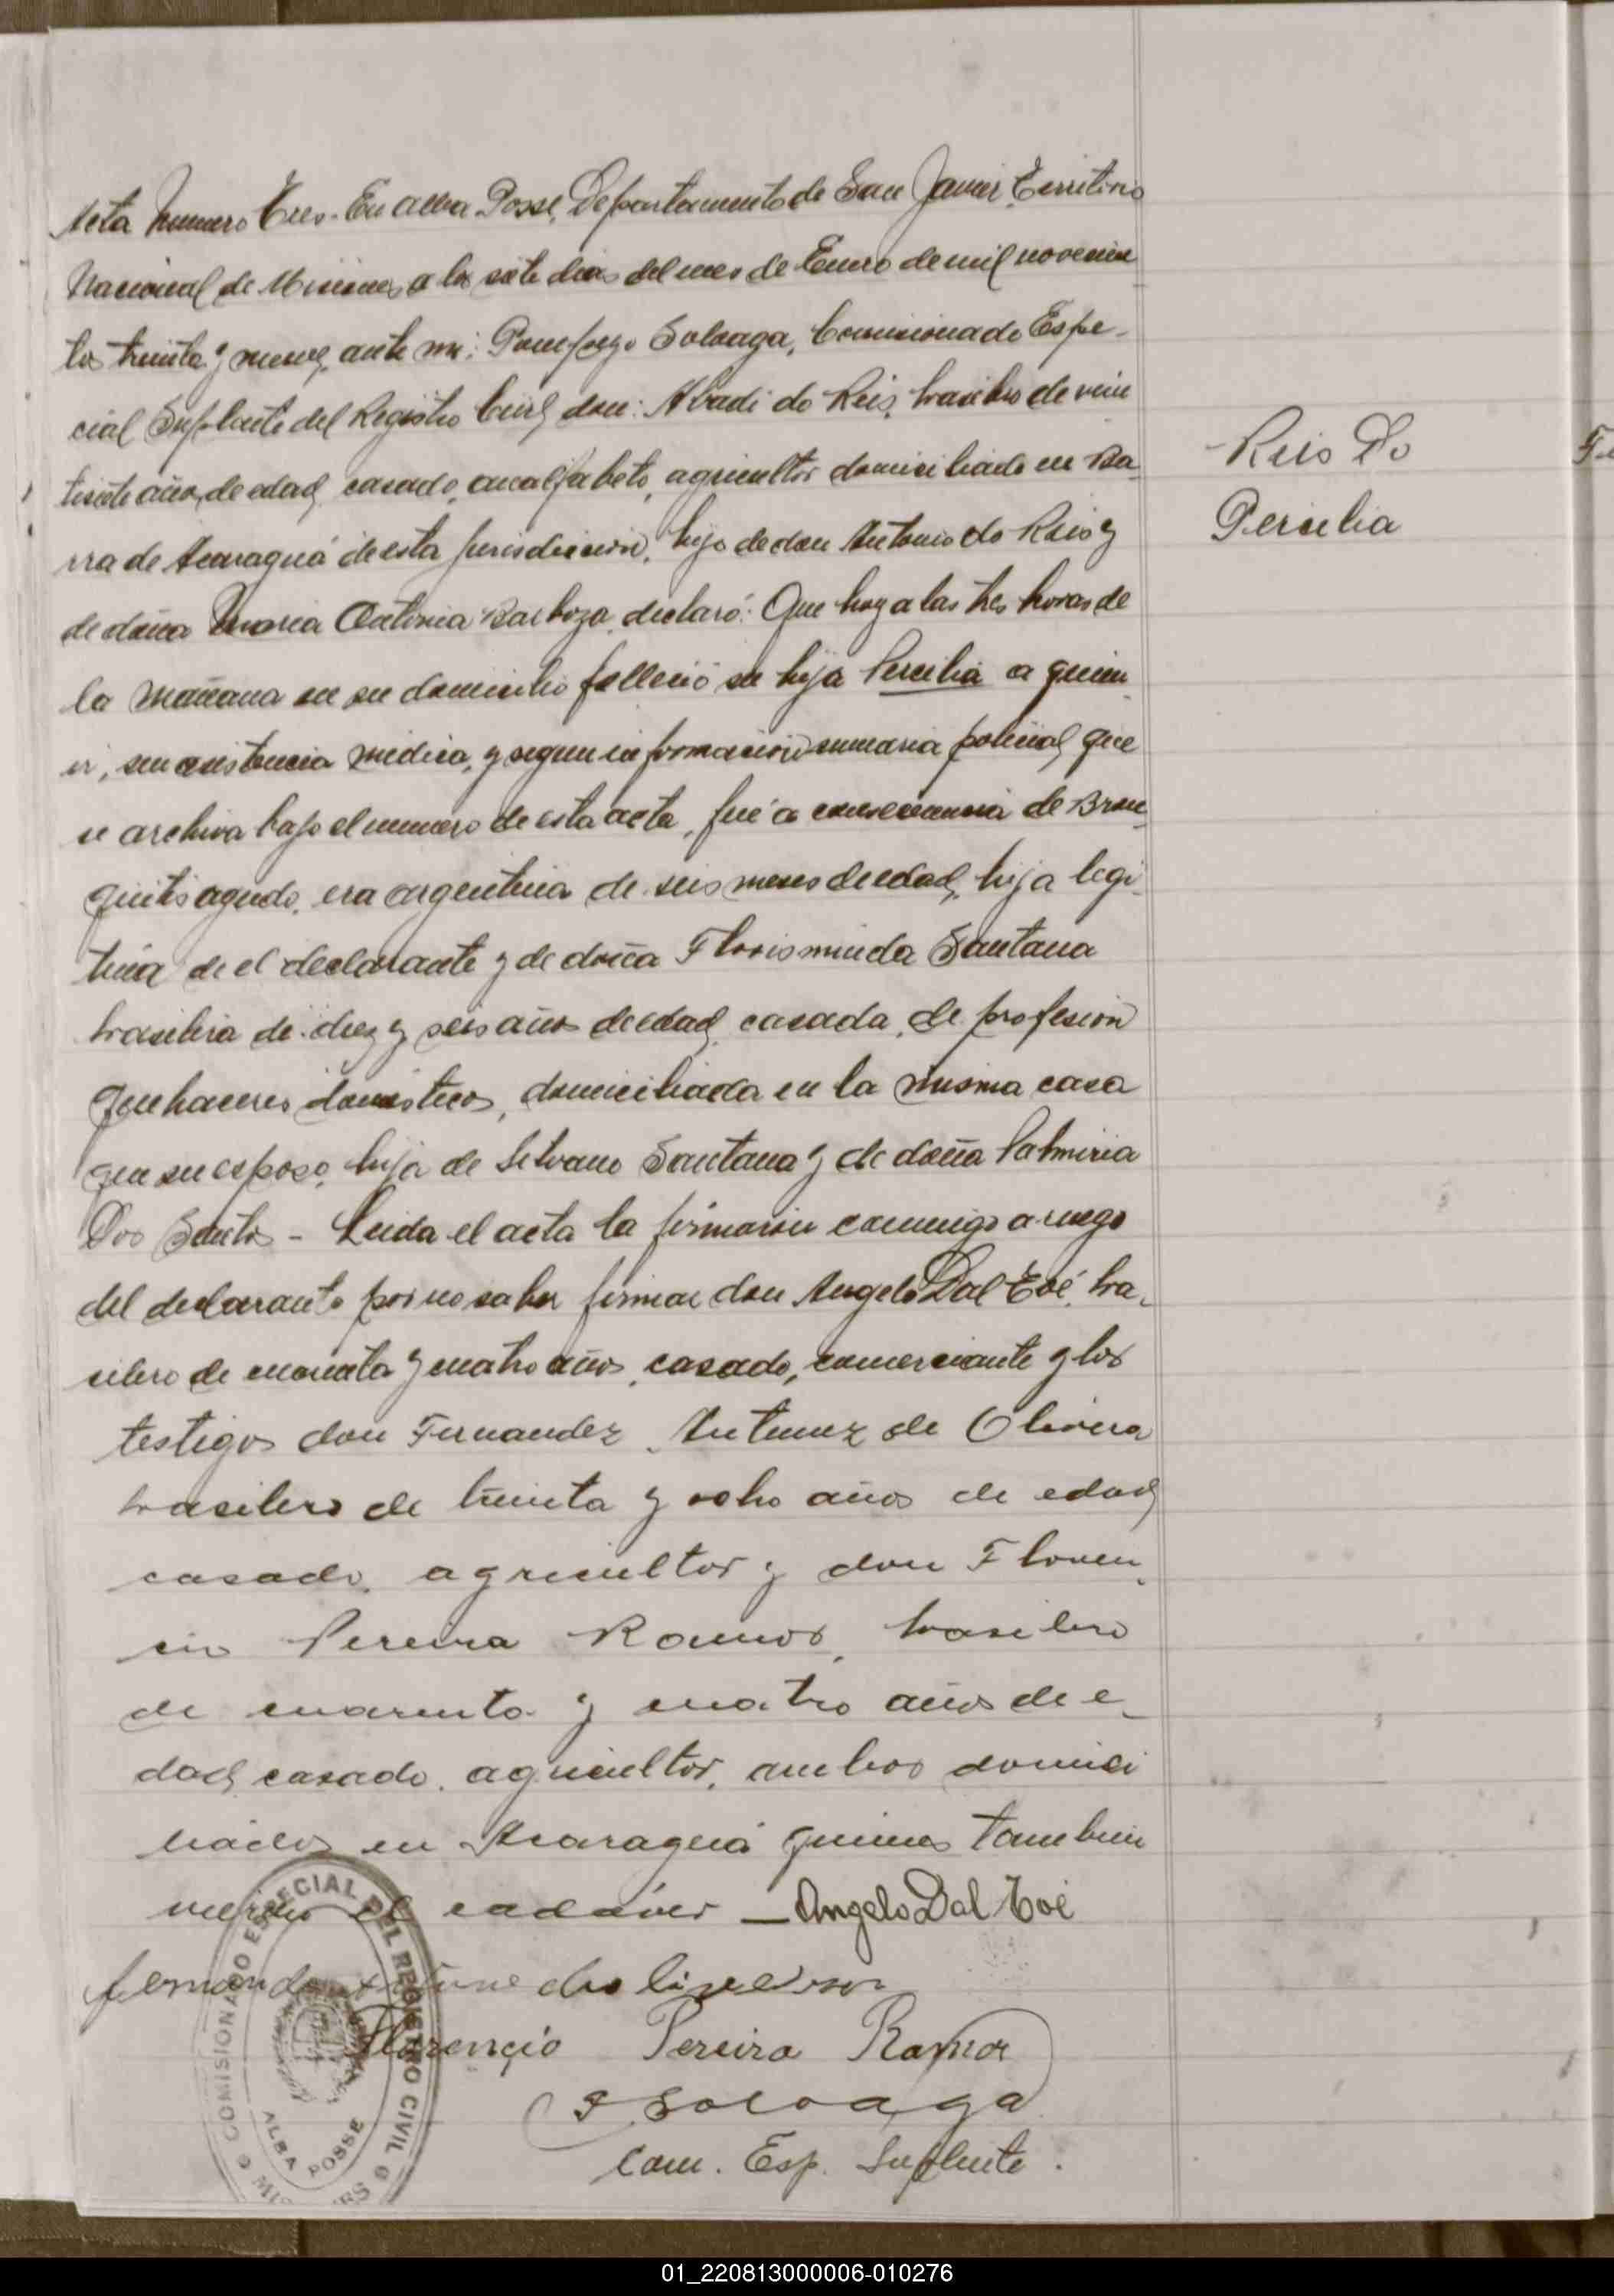 Acta Numero Tres. En Alba Posse, Departamento de San Javier, Territorio
Nacional de Misiones, a los siete dias del mes de Enero de mil novecien
tos treinta y nueve, ante mi: Solvaga, Comisionado Espe-
cial Suplente del Registro Civil, don: Abadi do Reis, brasilero de vein
tisiete años de edad, casado, analfabeto, agricultor domiciliado en Ba-
rra de Acaraguá de esta jurisdiccion, hijo de don Antonio do Reis y
de doña Maria Barboza, declaró: Que hoy a las tres horas de
la mañana en su domicilio falleció su hija Percilia a quien
vi, sin asistencia médica, y segun informacion sumaria policial, que
se archiva bajo el numero de esta acta, fué a consecuencia de Bron-
quitis aguda, era argentina de seis meses de edad, hija legi-
tima de el declarante y de doña Florisminda Santana
brasilera de diez y seis años de edad, casada, de profesion
quehaceres domésticos, domiciliada en la misma casa
que su esposo, hija de Silvano Santana y de doña Palmiria
Dos Santos - Leida el acta la firmaron conmigo a ruego
del declarante por no saber firmar don Angelo Dal Toé, bra-
silero de cuarenta y cuatro años, casado, comerciante y los
testigos don Fernandez Antunez de Olivera
brasilero de treinta y ocho años de edad
casado, agricultor y don Floren-
cio Pereira Ramos, brasilero
de cuarenta y cuatro años de e-
dad, casado, agricultor, ambos domici
liados en Acaraguá quienes tambien
vieron el cadáver — Angelo Dal Toé
fernando
Florençio Pereira Ramos
P Solvaga
Com. Esp. Suplente.
-Reis Do
Percilia
COMISIONADO ESPECIAL DEL REGISTRO CIVIL
ALBA POSSE
01_220813000006-010276